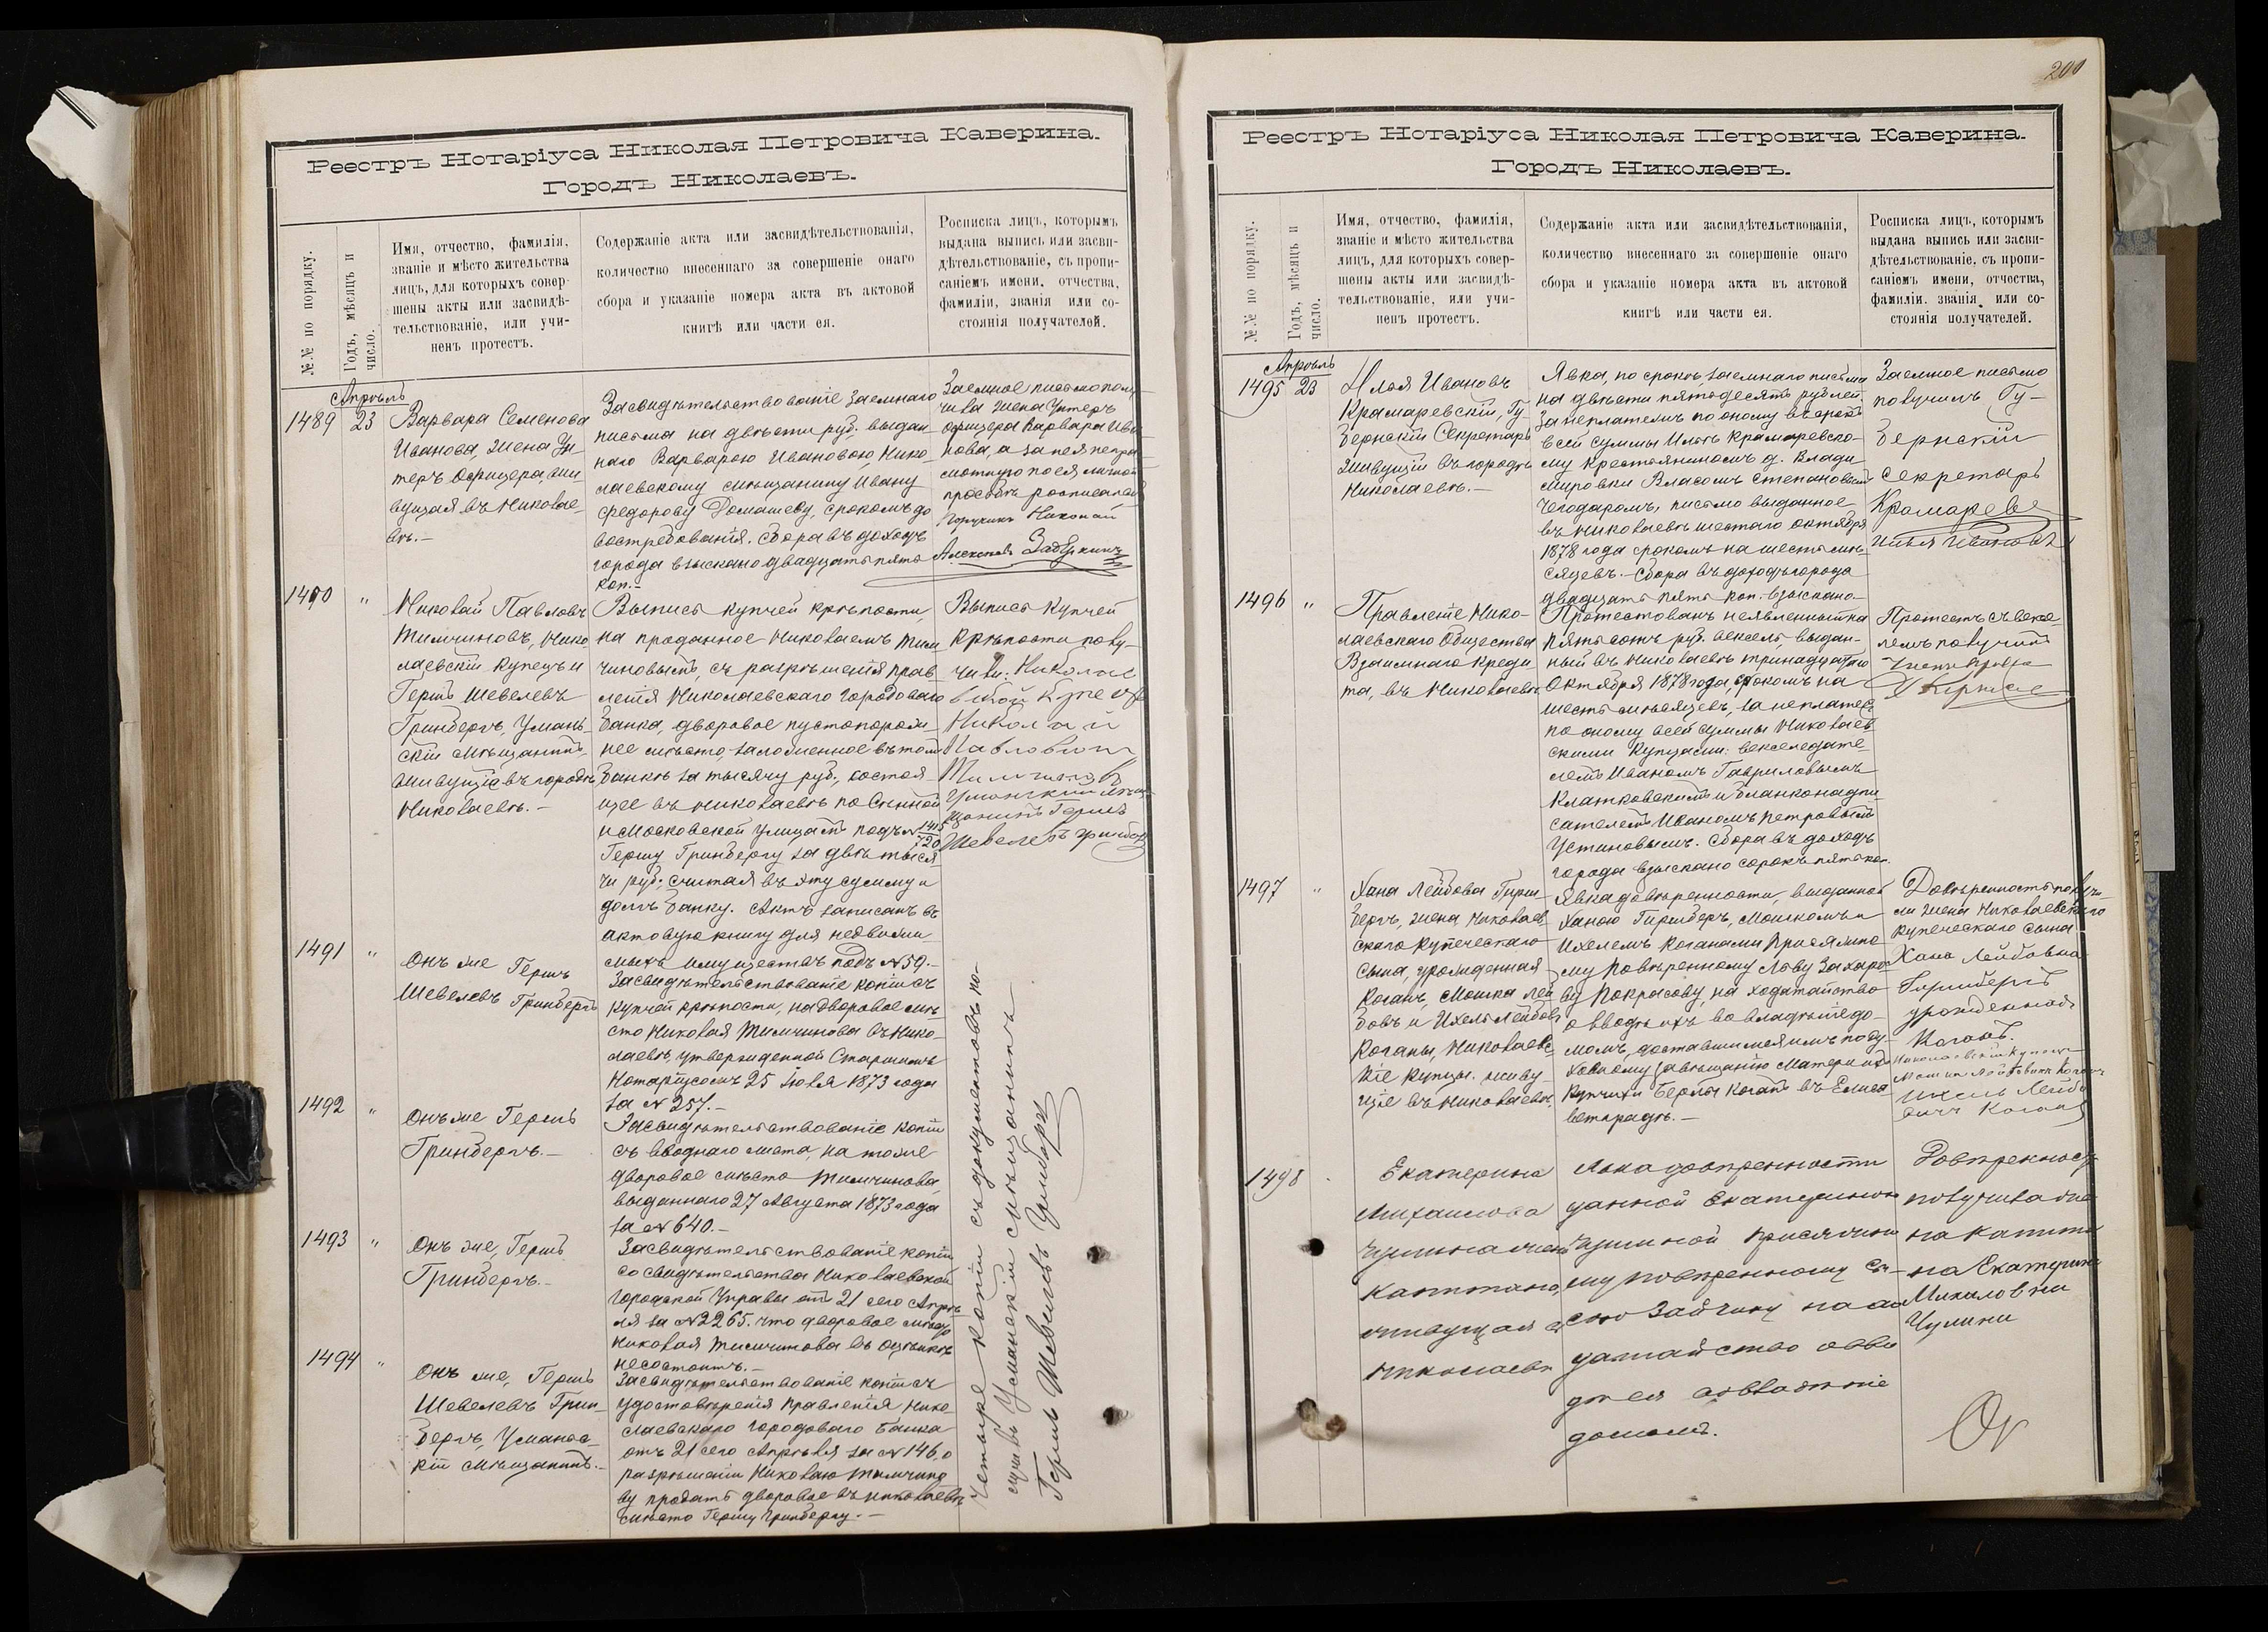 Реестръ Нотаріуса Николая Петровича Каверина.
Городъ Николаевъ.
№№ по порядку.
Годъ, мѣсяцъ и
число.
Имя, отчество, фамилія,
званіе и мѣсто жительства
лицъ, для которыхъ совер-
шены акты или засвидѣ-
тельствованіе, или учи-
ненъ протестъ.
Содержаніе акта или засвидѣтельствованія,
количество внесеннаго за совершеніе онаго
сбора и указаніе номера акта въ актовой
книгѣ или части ея.
Росписка лицъ, которымъ
выдана выпись или засви-
дѣтельствованіе, съ пропи-
саніемъ имени, отчества,
фамиліи, званія или со-
стоянія получателей.
Апрѣль
1489 23
Варвара Семенова
Иванова, жена Ун-
теръ Офицера, жи
вущая въ Николае-
вѣ.-
Засвидѣтельствованіе заемнаго
письма на двѣсти руб., выдан-
наго Варварою Ивановою, Нико-
лаевскому мѣщанину Ивану
Федорову Домашеву, срокомъ до
востребованія. Сбора въ доходъ
города взыскано двадцать пять
коп.-
Заемное письмо полу-
чила жена Унтеръ
Офицера Варвара Ива
нова, а за нея негра-
мотную по ея личной
просьбѣ росписался
Николай
1490 "
Николай Павловъ
Тимчиновъ, Нико
лаевскій Купецъ и
Гершъ Шевелевъ
Гринбергъ, Умань-
скій мѣщанинъ,
живущіе въ городѣ
Николаевѣ.-
Выпись купчей крѣпости,
на проданное Николаемъ Тим
чиновымъ, съ разрѣшенія Прав
ленія Николаевскаго Городоваго
Банка, дворовое пустопорож-
нее мѣсто, заложенное въ томъ
Банкѣ за тысячу руб., состоя-
щее въ Николаевѣ по Сѣнной
и Московской улицамъ подъ №
Гершу Гринбергу за двѣ тыся
чи руб., считая въ эту сумму и
долгъ Банку. Актъ записанъ въ
актовую книгу для недвижи-
мыхъ имуществъ подъ №59.-
Выпись купчей
крѣпости полу-
чили: Николае
вской Купецъ
Николай
Павловичъ
Тимчиновъ
Уманскій мѣщ
анинъ Гершъ
Шевелевъ Гринберг
1491 "
Онъ же Гершъ
Шевелевъ Гринбергъ
Засвидѣтельствованіе копіи съ
купчей крѣпости, на дворовое мѣ
сто Николая Тимчинова въ Нико-
лаевѣ, утвержденной Старшимъ
Нотаріусомъ 25 Іюля 1873 года
за №257.-
1492 "
Онъ же Гершъ
Гринбергъ.-
Засвидѣтельствованіе копіи
съ вводнаго листа, на тоже
дворовое мѣсто Тимчинова,
выданнаго 27 Августа 1873 года
за №640.-
1493 "
Онъ же, Гершъ
Гринбергъ.-
Засвидѣтельствованіе копіи
со свидѣтельства Николаевской
Городской Управы отъ 21 сего Апрѣ
ля за №2265. что дворовое мѣсто
Николая Тимчинова въ оцѣнкѣ
не состоитъ.-
1494 "
Онъ же, Гершъ
Шевелевъ Грин-
бергъ, Уманс-
кій мѣщанинъ.-
Засвидѣтельствованіе копіи съ
удостовѣренія Правленія Нико-
лаевскаго Городоваго Банка
отъ 21 сего Апрѣля за №146, о
разрѣшеніи Николаю Тимчино
ву продать дворовое въ Николаевѣ
мѣсто Гершу Гринбергу.-
Четыре копіи съ документовъ по-
лучилъ Уманскій мѣщанинъ
Гершъ Шевелевъ Гринберг
200
Реестръ Нотаріуса Николая Петровича Каверина.
Городъ Николаевъ.
№№ по порядку.
Годъ, мѣсяцъ и
число.
Имя, отчество, фамилія,
званіе и мѣсто жительства
лицъ, для которыхъ совер-
шены акты или засвидѣ-
тельствованіе, или учи-
ненъ протестъ.
Содержаніе акта или засвидѣтельствованія,
количество внесеннаго за совершеніе онаго
сбора и указаніе номера акта въ актовой
книгѣ или части ея.
Росписка лицъ, которымъ
выдана выпись или засви-
дѣтельствованіе, съ пропи-
саніемъ имени, отчества,
фамиліи, званія или со-
стоянія получателей.
Апрѣль
1495 23
Илья Ивановъ
Крамаревскій, Гу
бернскій Секретарь
живущій въ городѣ
Николаевѣ.-
Явка, по срокѣ, заемнаго письма
на двѣсти пятьдесятъ рублей
за неплатежъ по оному въ срокъ
всей суммы Ильѣ Крамаревско-
му крестьяниномъ д. Влади
мировки Власомъ Степановымъ
Чегодаромъ, письмо выданное
въ Николаевѣ шестаго октября
1878 года срокомъ на шесть мѣ-
сяцевъ.- Сбора въ доходъ города
двадцать пять коп. взыскано.-
Заемное письмо
получилъ Гу-
бернскій
секретарь
Крамаревс
Илья Ивановъ
1496 "
Правленіе Нико-
лаевскаго Общества
Взаимнаго Креди
та, въ Николаевѣ
Протестованъ неявленный на
пятьсотъ руб. вексель, выдан-
ный въ Николаевѣ тринадцатаго
Октября 1878 года, срокомъ на
шесть мѣсяцевъ, за неплатежъ
по оному всей суммы Николаев
скими купцами: векселедате-
лемъ Иваномъ Гавриловымъ
Клатковскимъ и бланконадпи
сателемъ Иваномъ Петровымъ
Устиновымъ. Сбора въ доходъ
города взыскано сорокъ пять коп.
Протестъ съ вексе-
лемъ получилъ
1497 "
Хана Лейбова Гирш
бергъ, жена Николаев
скаго Купеческаго
Сына, урожденная
Коганъ, Мошка Лей
бовъ и Ихель Лейбовъ
Коганы, Николаевс-
кіе Купцы. живу-
щіе въ Николаевѣ.
Явка довѣренности, выданной
Ханою Гиршбергъ, Мошкомъ и
Ихелемъ Коганами Присяжно
му Повѣренному Льву Захаро
ву Покрасову, на ходатайство
о вводѣ ихъ во владѣніе до-
момъ, доставшимся имъ по ду-
ховному завѣщанію матери ихъ
Купчихи Берты Коганъ въ Елиса
ветградѣ.-
Довѣренность получи-
ли жена Николаевскаго
купеческаго сына
Хана Лейбовна
Гиршбергъ
урожденная
Коганъ.
Николаевскій Купецъ
Мошка Лейбовичъ Коганъ
Ихель Лейбо
вичъ Коганъ
1498
Екатерина
Михайлова
Чулина жена
капитана,
живущая въ
Николаевѣ
Явка довѣренности
данной Екатериною
Чулиной присяжно
му повѣренному
Зайчику на хо
датайство о вво
дѣ ея во владѣніе
домомъ.
Довѣренность
получила же
на капита
на Екатерина
Михаловна
Чулина